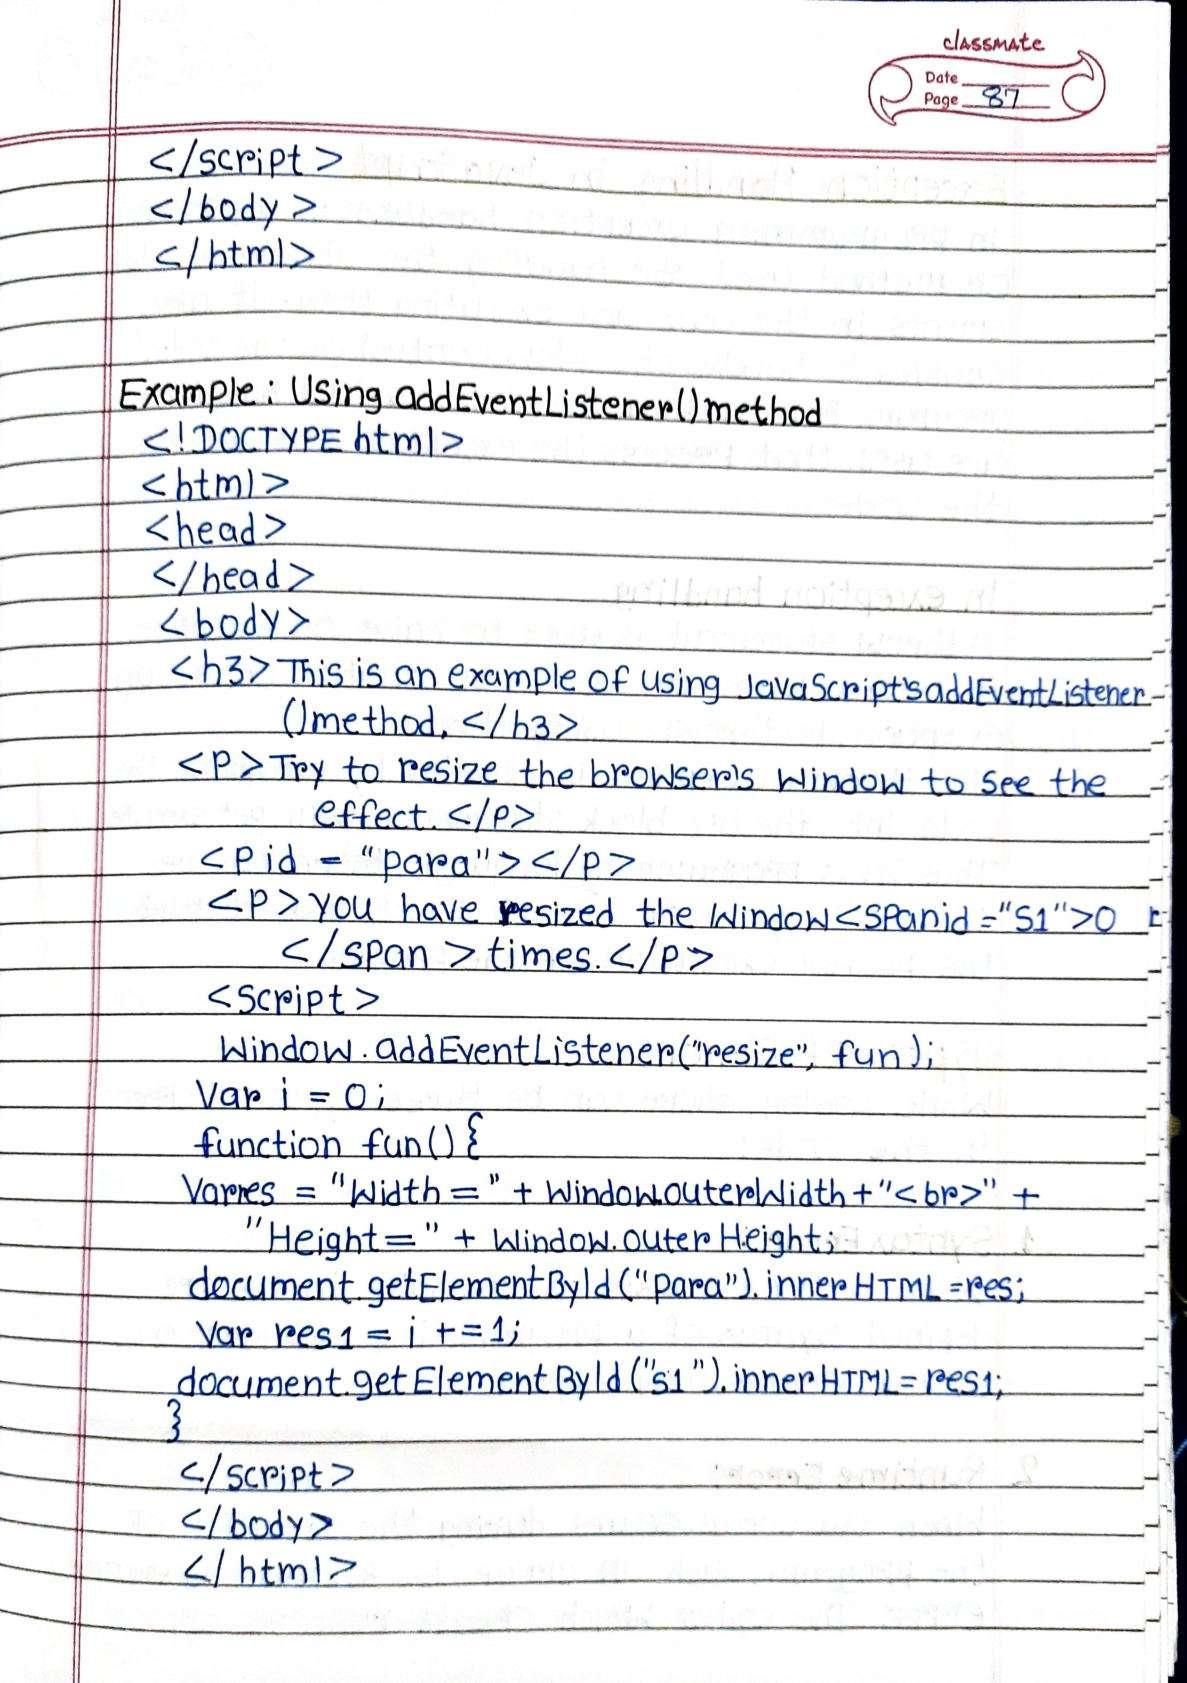 classmate
Date
Page 87
</script>
</body>
</html>
Example: Using addEventListener() method
<!DOCTYPE html>
<html>
<head>
</head>
<body>
<h3> This is an example of using JavaScript's addEventListener
() method. </h3>
<p> Try to resize the browser's window to see the
effect. </p>
<p id = "para"> </p>
<p> you have resized the window <span id = "s1">0
</span> times. </p>
<script>
window.addEventListener("resize", fun);
Var i = 0;
function fun() {
Var res = "Width = " + window.outerWidth + "<br>" +
"Height = " + window.outerHeight;
document.getElementById("para").innerHTML = res;
Var res1 = i += 1;
document.getElementById("s1").innerHTML = res1;
}
</script>
</body>
</html>